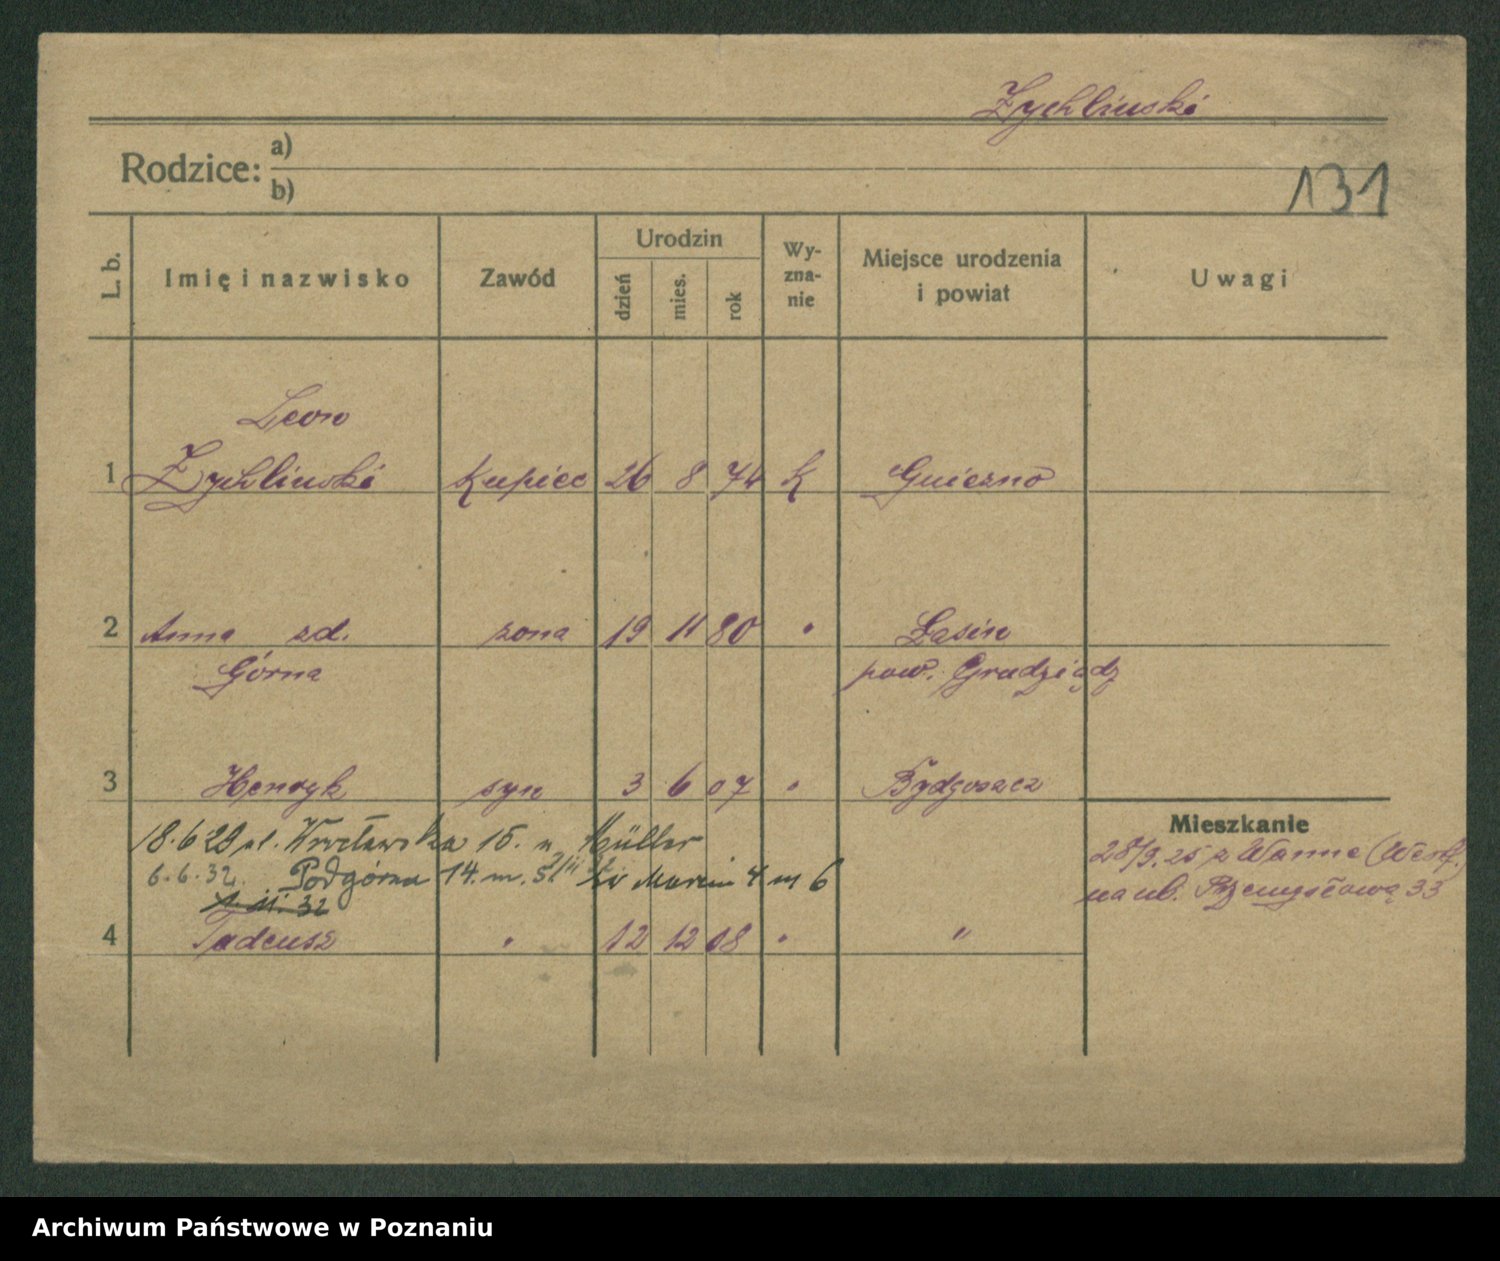 Zychlinski
Rodzice: a)
b)
131
L. b.
Imię i nazwisko
Zawód
Urodzin
dzień
mies.
rok
Wy-
zna-
nie
Miejsce urodzenia
i powiat
Uwagi
Leon
1 Zychlinski Kupiec 26 8 74 K Gniezno
2 Anna zd. żona 19 11 80 " Łasin
Górna pow. Grudziądz
3 Henryk syn 3 6 07 " Bydgoszcz
Mieszkanie
18.6 29 ul. Wrocławska 15. u Müller
28/9. 25 z Wanne (Westf.)
6.6.32. Podgórna 14. m. 5 Św Marcin 4 m 6
na ul. Przemysłową 33
1. 11. 32
4 Tadeusz " 12 12 08 " "
Archiwum Państwowe w Poznaniu